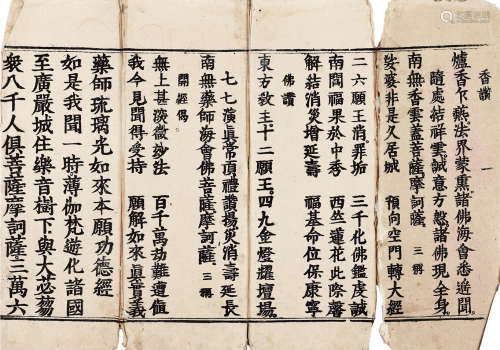 香讚
一
爐香乍爇。法界蒙熏諸佛海會悉遙聞。
隨處結祥雲。誠意方慇諸佛現全身。
南無香雲蓋菩薩摩訶薩。三稱
娑婆非是久居城 預向空門轉大經
二六願王消罪垢 三千化佛鑑虔誠
南閻福果於中秀 西竺蓮花此際馨
解結消災增延壽 福基命位保康寧
佛讚
東方教主十二願王。四九金燈耀壇場。
七七演眞常頂禮讚揚。災消壽延長
南無藥師海會佛菩薩摩訶薩。三稱
開經偈
無上甚深微妙法 百千萬劫難遭值
我今見聞得受持 願解如來眞實義
藥師琉璃光如來本願功德經
如是我聞一時薄伽梵遊化諸國
至廣嚴城住樂音樹下與大苾芻
衆八千人俱菩薩摩訶薩三萬六